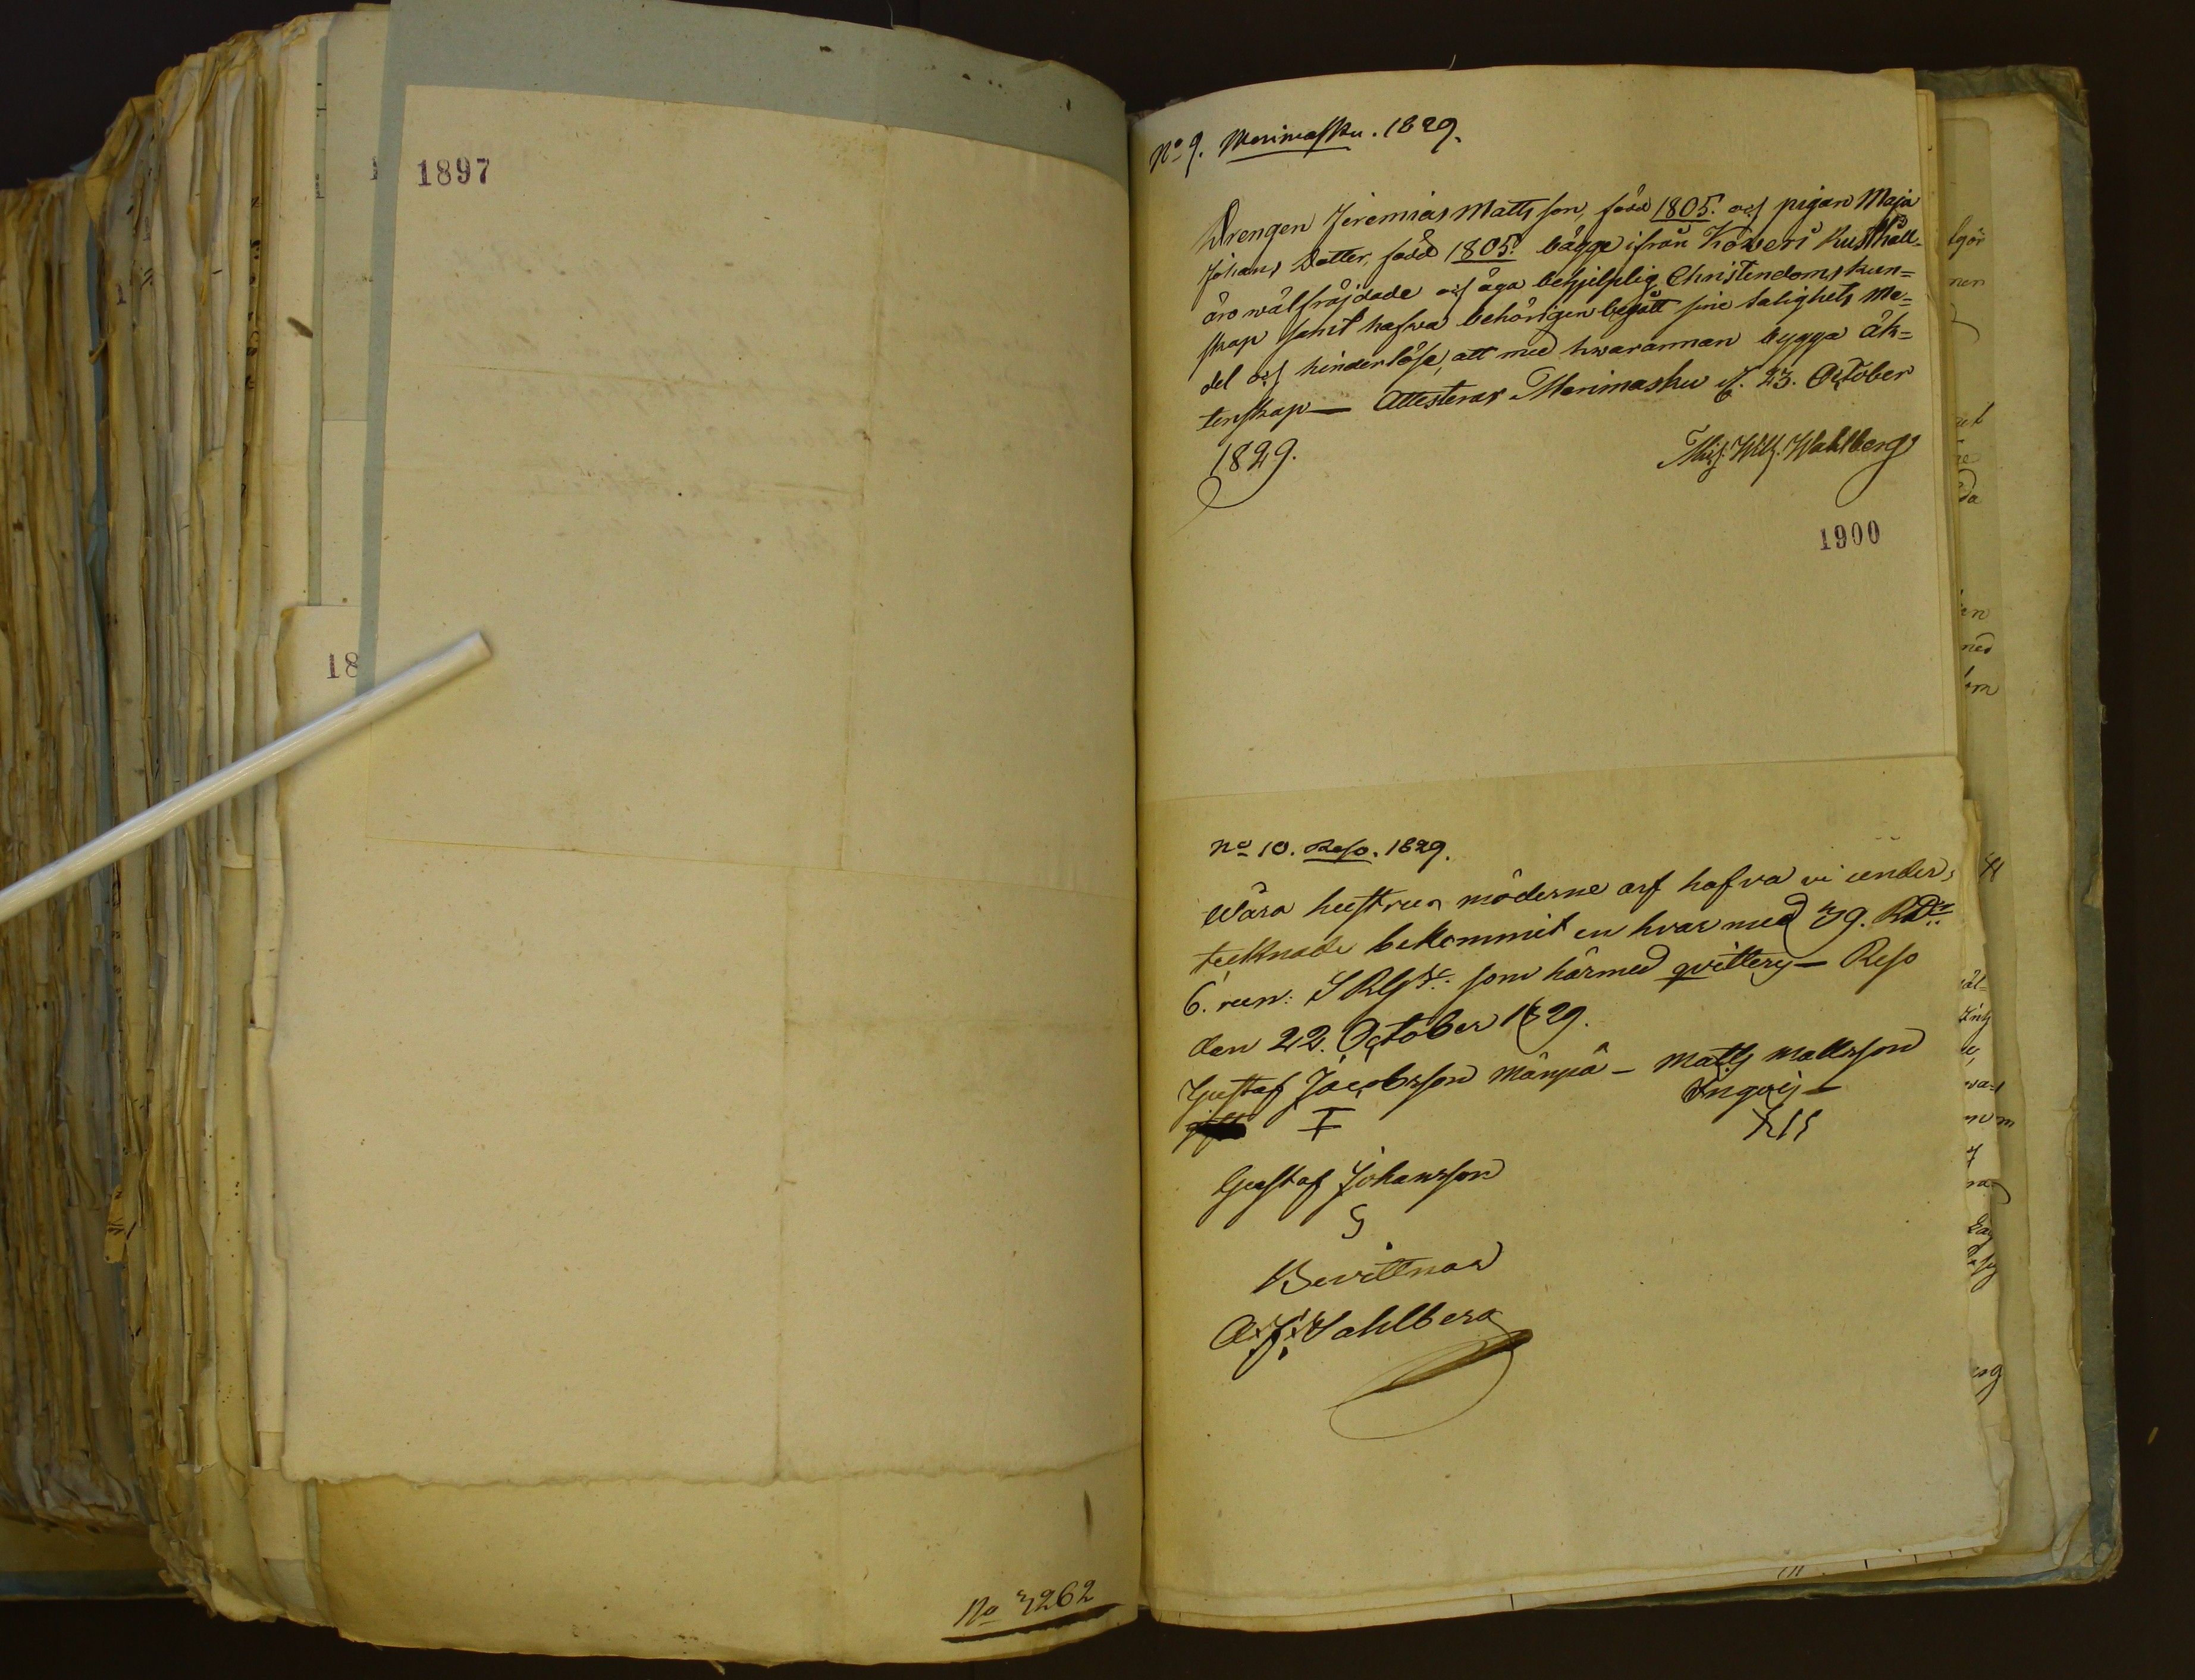 1897
18
No 3262
No 9. Merimasku. 1829.
Drengen Jeremias Matts son, född 1805. och pigan Maja
Johans Dotter, född 1805. bägge ifrån Köweri Rusthåll
äro wälfräjdade och äga behjelplig Christendoms kun=
skap samt hafwa behörigen begått sine salighets Me=
del och hinderlöse, att med hwarannan bygga äk=
tenskap — Attesteras Merimasku d. 23. October
1829.
Wilh. Wahlberg
1900
No 10. Reso. 1829.
Wåra hustrurs möderne arf hafva vi under,
tecknade bekommit en hvar med 39. RD:r
6. run: S som härmed qvitteras — Reso
den 22. October 1829.
Gustaf Jacobsson Mänpä — Matts Mattsson
Ingois —
Gustaf Johansson
G
Bevittnar
A. J. Wahlberg